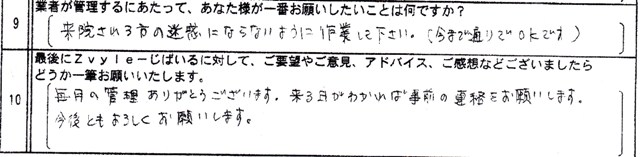 業者が管理するにあたって、あなた様が一番お願いしたいことは何ですか？
9
来院される方の迷惑にならないように作業して下さい。（今まで通りでOKです）
最後にＺｖｙｌｅーじばいるに対して、ご要望やご意見、アドバイス、ご感想などございましたら
どうか一筆お願いいたします。
10
毎月の管理ありがとうございます。来る日がわかれば事前の連絡をお願いします。
今後ともよろしくお願いします。